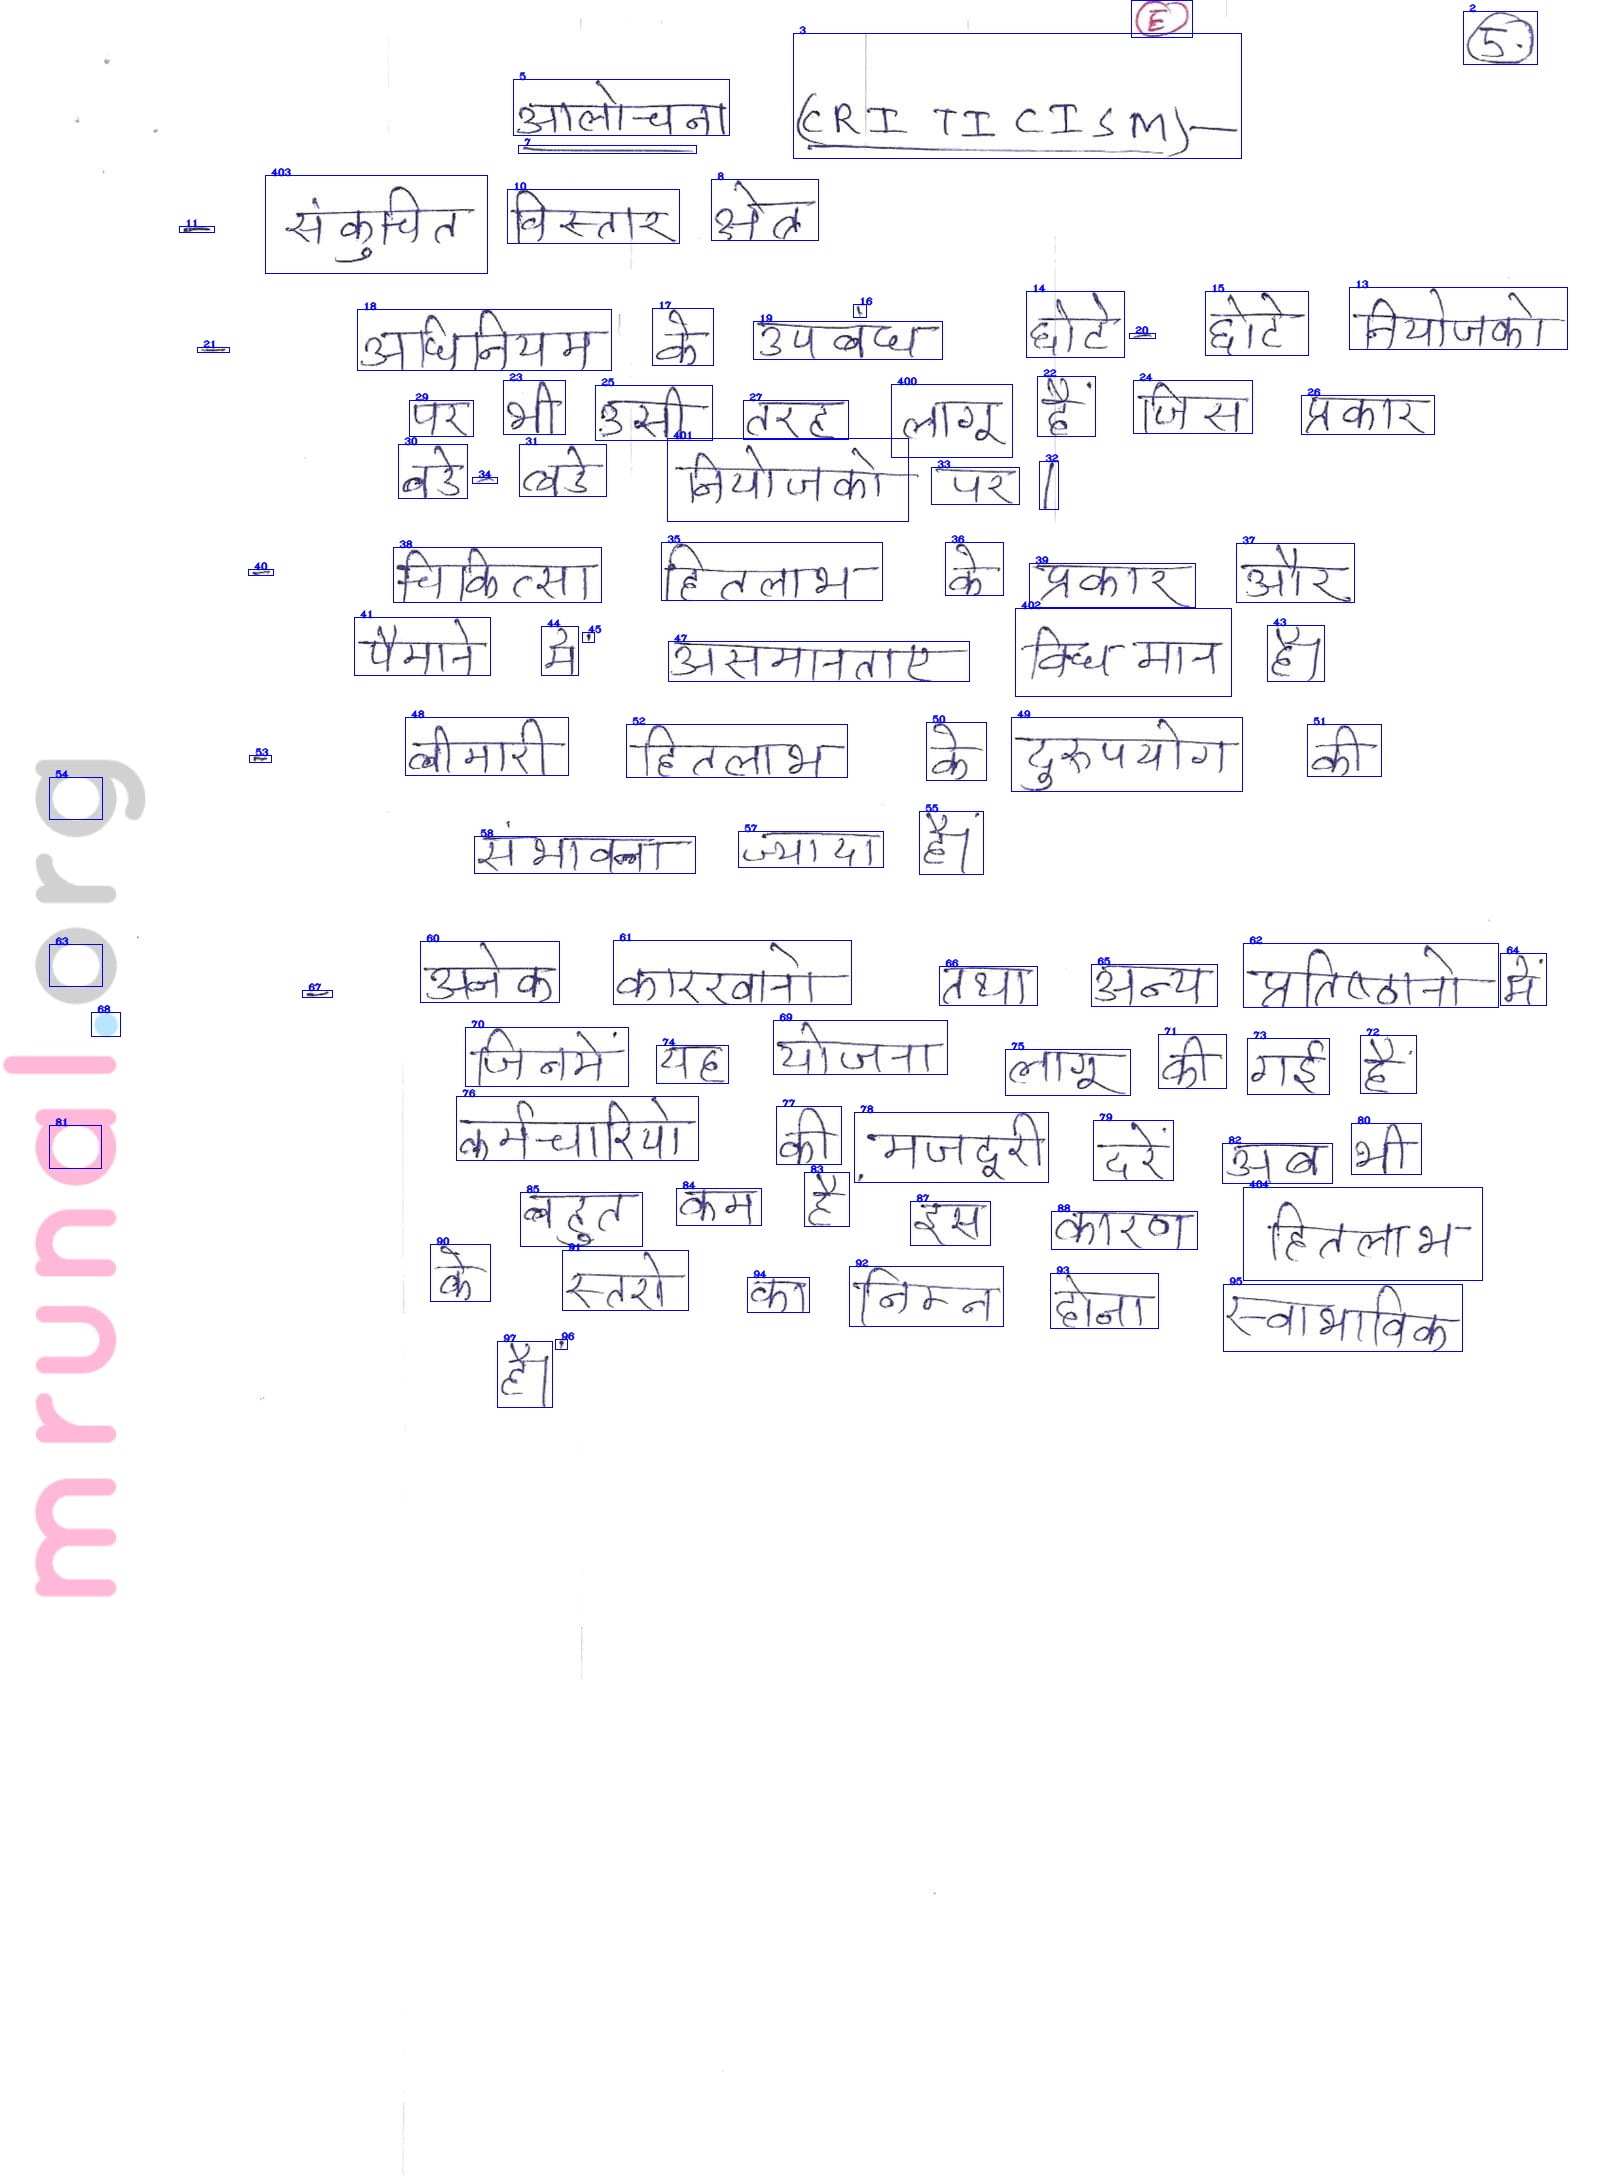 E
5.
आलोचना (CRITICISM)—
- संकुचित विस्तार क्षेत्र
- अधिनियम के उपबन्ध छोटे-छोटे नियोजको
पर भी उसी तरह लागू हैं जिस प्रकार
बडे-बडे नियोजको पर।
- चिकित्सा हितलाभ के प्रकार और
पैमाने में असमानताए विधमान है।
- बीमारी हितलाभ के दुरुपयोग की
संभावना ज्यादा हैं।
- अनेक कारखानो तथा अन्य प्रतिष्ठानो में
जिनमें यह योजना लागू की गई हैं
कर्मचारियो की मजदूरी दरें अब भी
बहुत कम है इस कारण हितलाभ
के स्तरो का निम्न होना स्वाभाविक
हैं।
mrunal.org